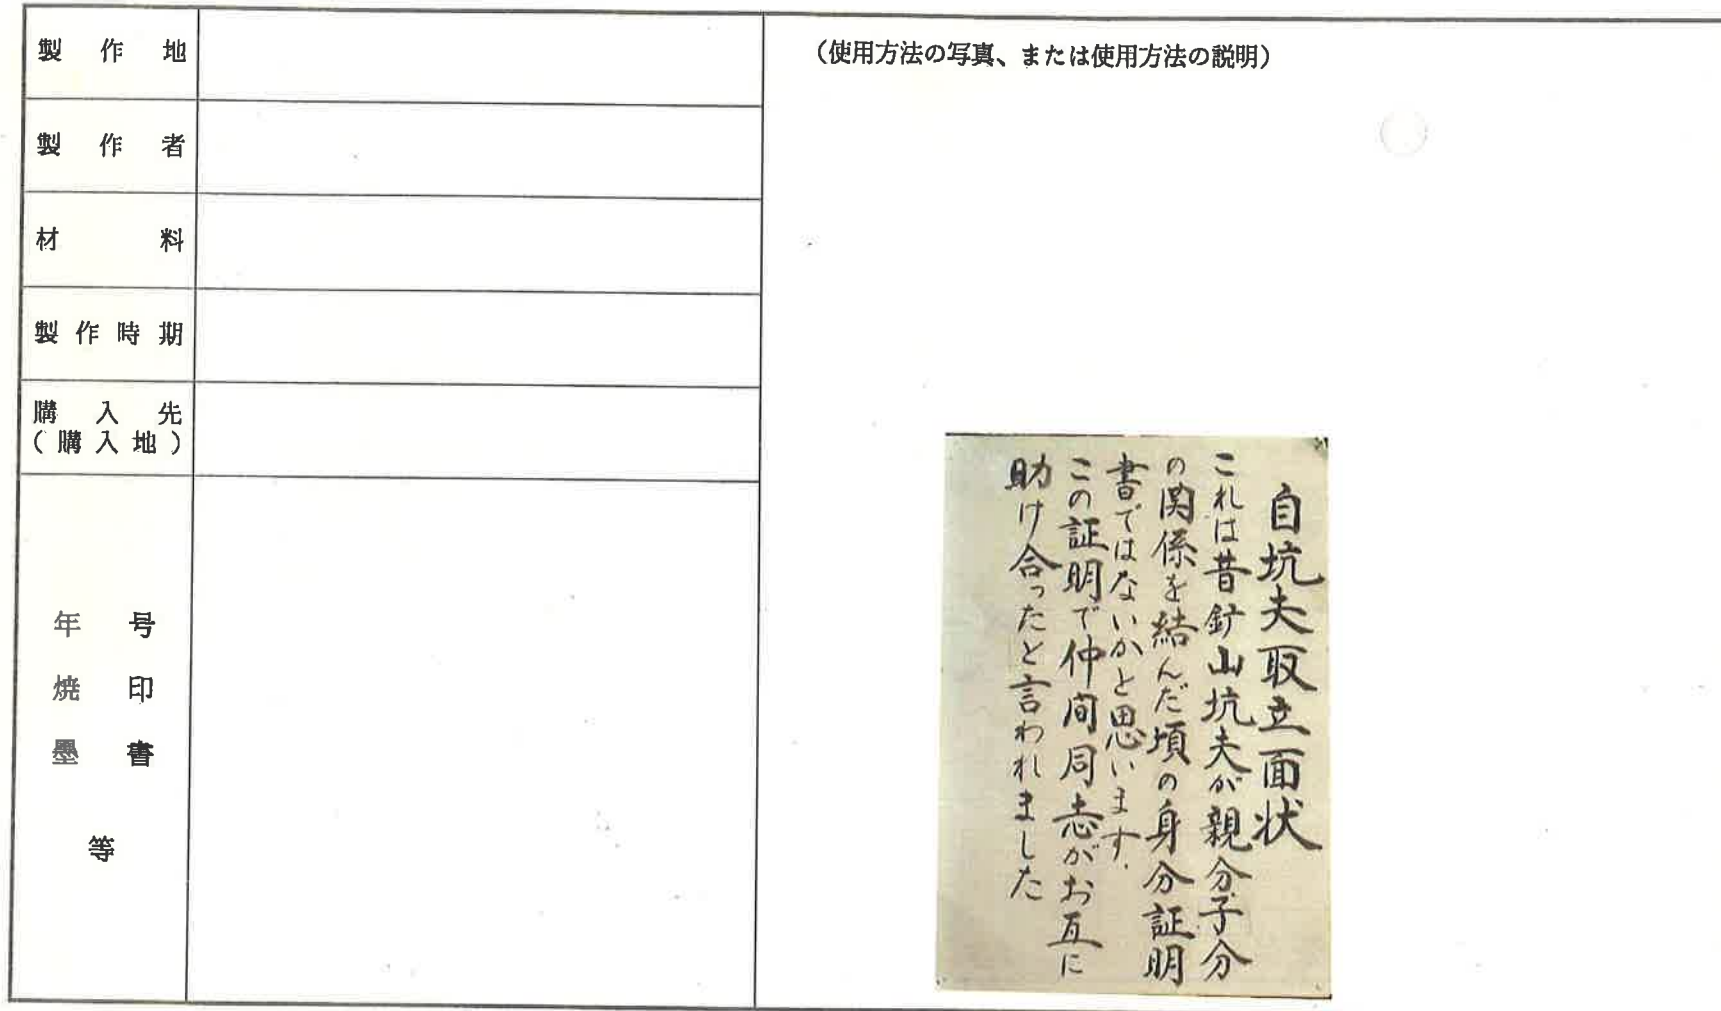 製作地
製作者
材料
製作時期
購入先
(購入地)
年号
焼印
墨書
等
(使用方法の写真、または使用方法の説明)
自坑夫取立面状
これは昔鉱山坑夫が親分子分
の関係を結んだ頃の身分証明
書ではないかと思います.
この証明で仲间同志がお互に
助け合ったと言われました